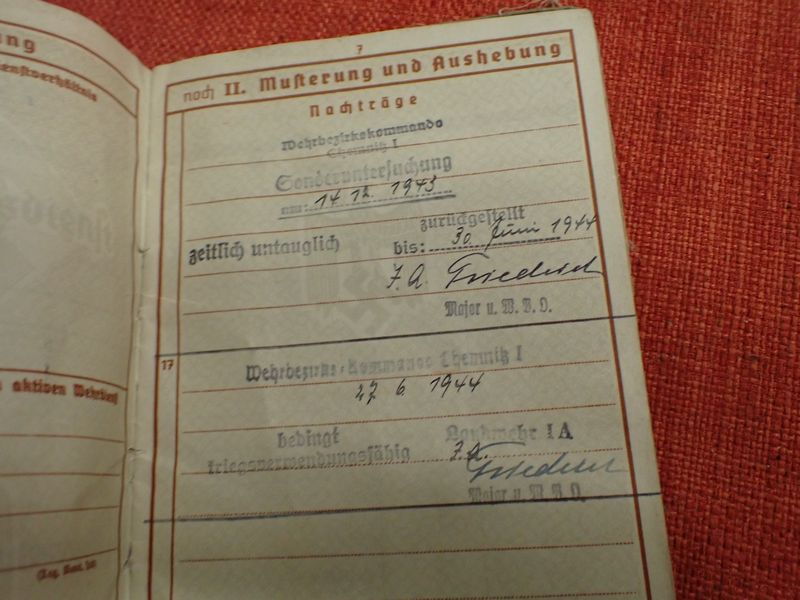 ng
enstverhältnis
n aktiven Wehrdienst
7
noch II. Musterung und Aushebung
Nachträge
Wehrbezirkskommando
Chemnitz I
Sonderuntersuchung
am: 14 12. 1943
zurückgestellt
zeitlich untauglich bis: 30. Juni 1944
J. A. Friedrich
Major u. W. B. O.
17
Wehrbezirks-Kommando Chemnitz I
27 6. 1944
bedingt Landwehr I A
kriegsverwendungsfähig J. A.
Friedrich
Major u. W. B. O.